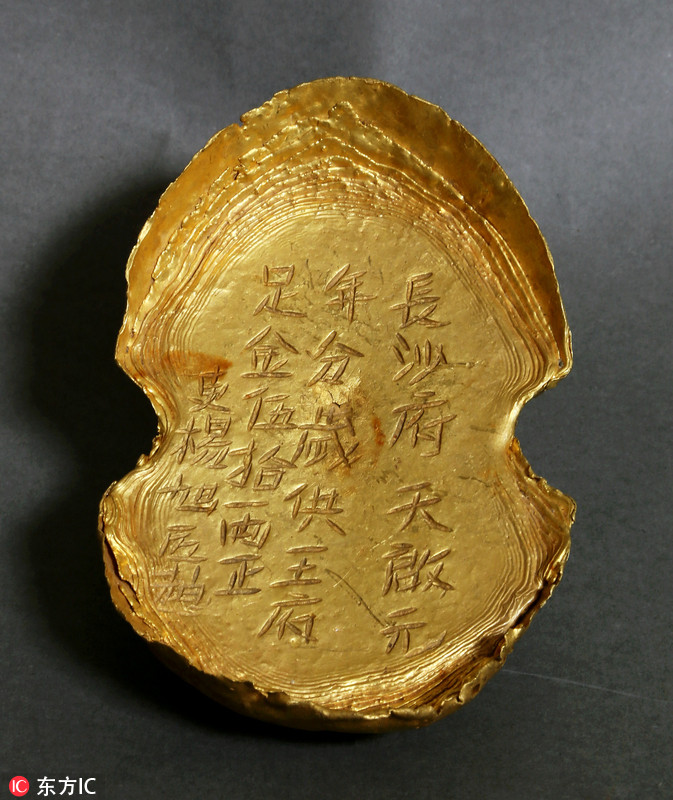 長沙府 天啟元
年分歲供王府
足金伍拾両正
吏楊旭匠
东方IC